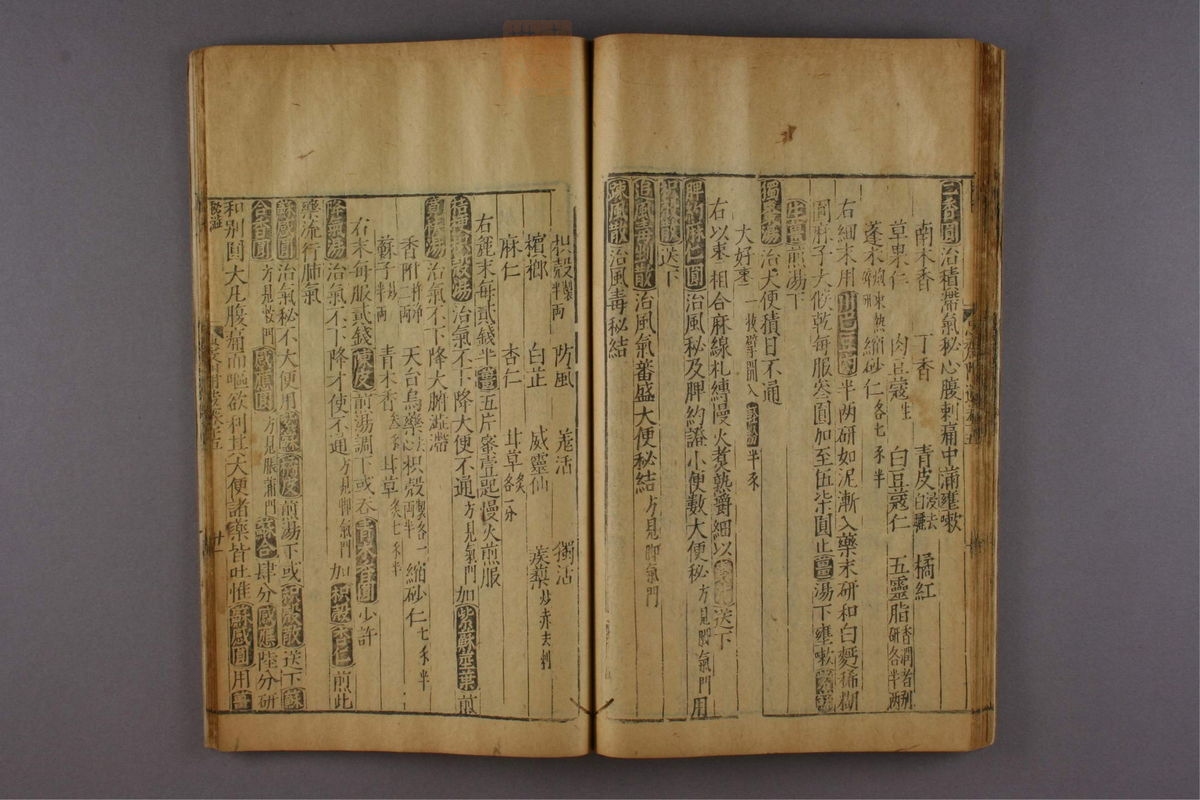 三香圓治積滯氣秘心腹刺痛中滿壅嗽
南木香 丁香 青皮浸去白 橘紅
草果仁 肉豆蔻生 白豆蔻仁 五靈脂香潤者別研各半兩
蓬朮 縮砂仁各七錢半
右細末用巴豆肉半兩研如泥漸入藥末研和白麪稀糊
圓麻子大候乾每服叄圓加至伍柒圓止薑湯下壅嗽紫蘇
生薑煎湯下
獨棗湯治大便積日不通
大好棗一枚擘開入輕粉半錢
右以棗相合麻線札縛慢火煮熟嚼細以棗湯送下
脾約麻仁圓治風秘及脾約證小便數大便秘方見脚氣門用
枳殼散送下
追風毒剉散治風氣蕃盛大便秘結方見脚氣門
疎風散治風毒秘結
枳殼製半兩 防風 羌活 獨活
檳榔 白芷 威靈仙 蒺藜炒赤去刺
麻仁 杏仁 甘草炙各一兩
右麁末每貳錢半薑五片蜜壹匙慢火煎服
桔梗枳殼湯治氣不下降大便不通方見氣門加紫蘇莖葉煎
蘇子降氣湯治氣不下降大腑澁滯
香附二兩 天台烏藥去心 枳殼製各一兩半 縮砂仁七錢半
蘇子炒半兩 青木香叄錢 甘草炙七錢半
右末每服貳錢陳皮煎湯調下或吞青木香圓少許
降氣湯治氣不下降才便不通方見脚氣門加枳殼杏仁煎此
藥流行肺氣
蘇感圓治氣秘不大便用紫蘇橘皮煎湯下或枳殼散送下蘇
合香圓方見諸氣門感應圓方見脹滿門蘇合肆分感應陸分研
和別圓大凡腹痛而嘔欲利其大便諸藥皆吐惟蘇感圓用薑